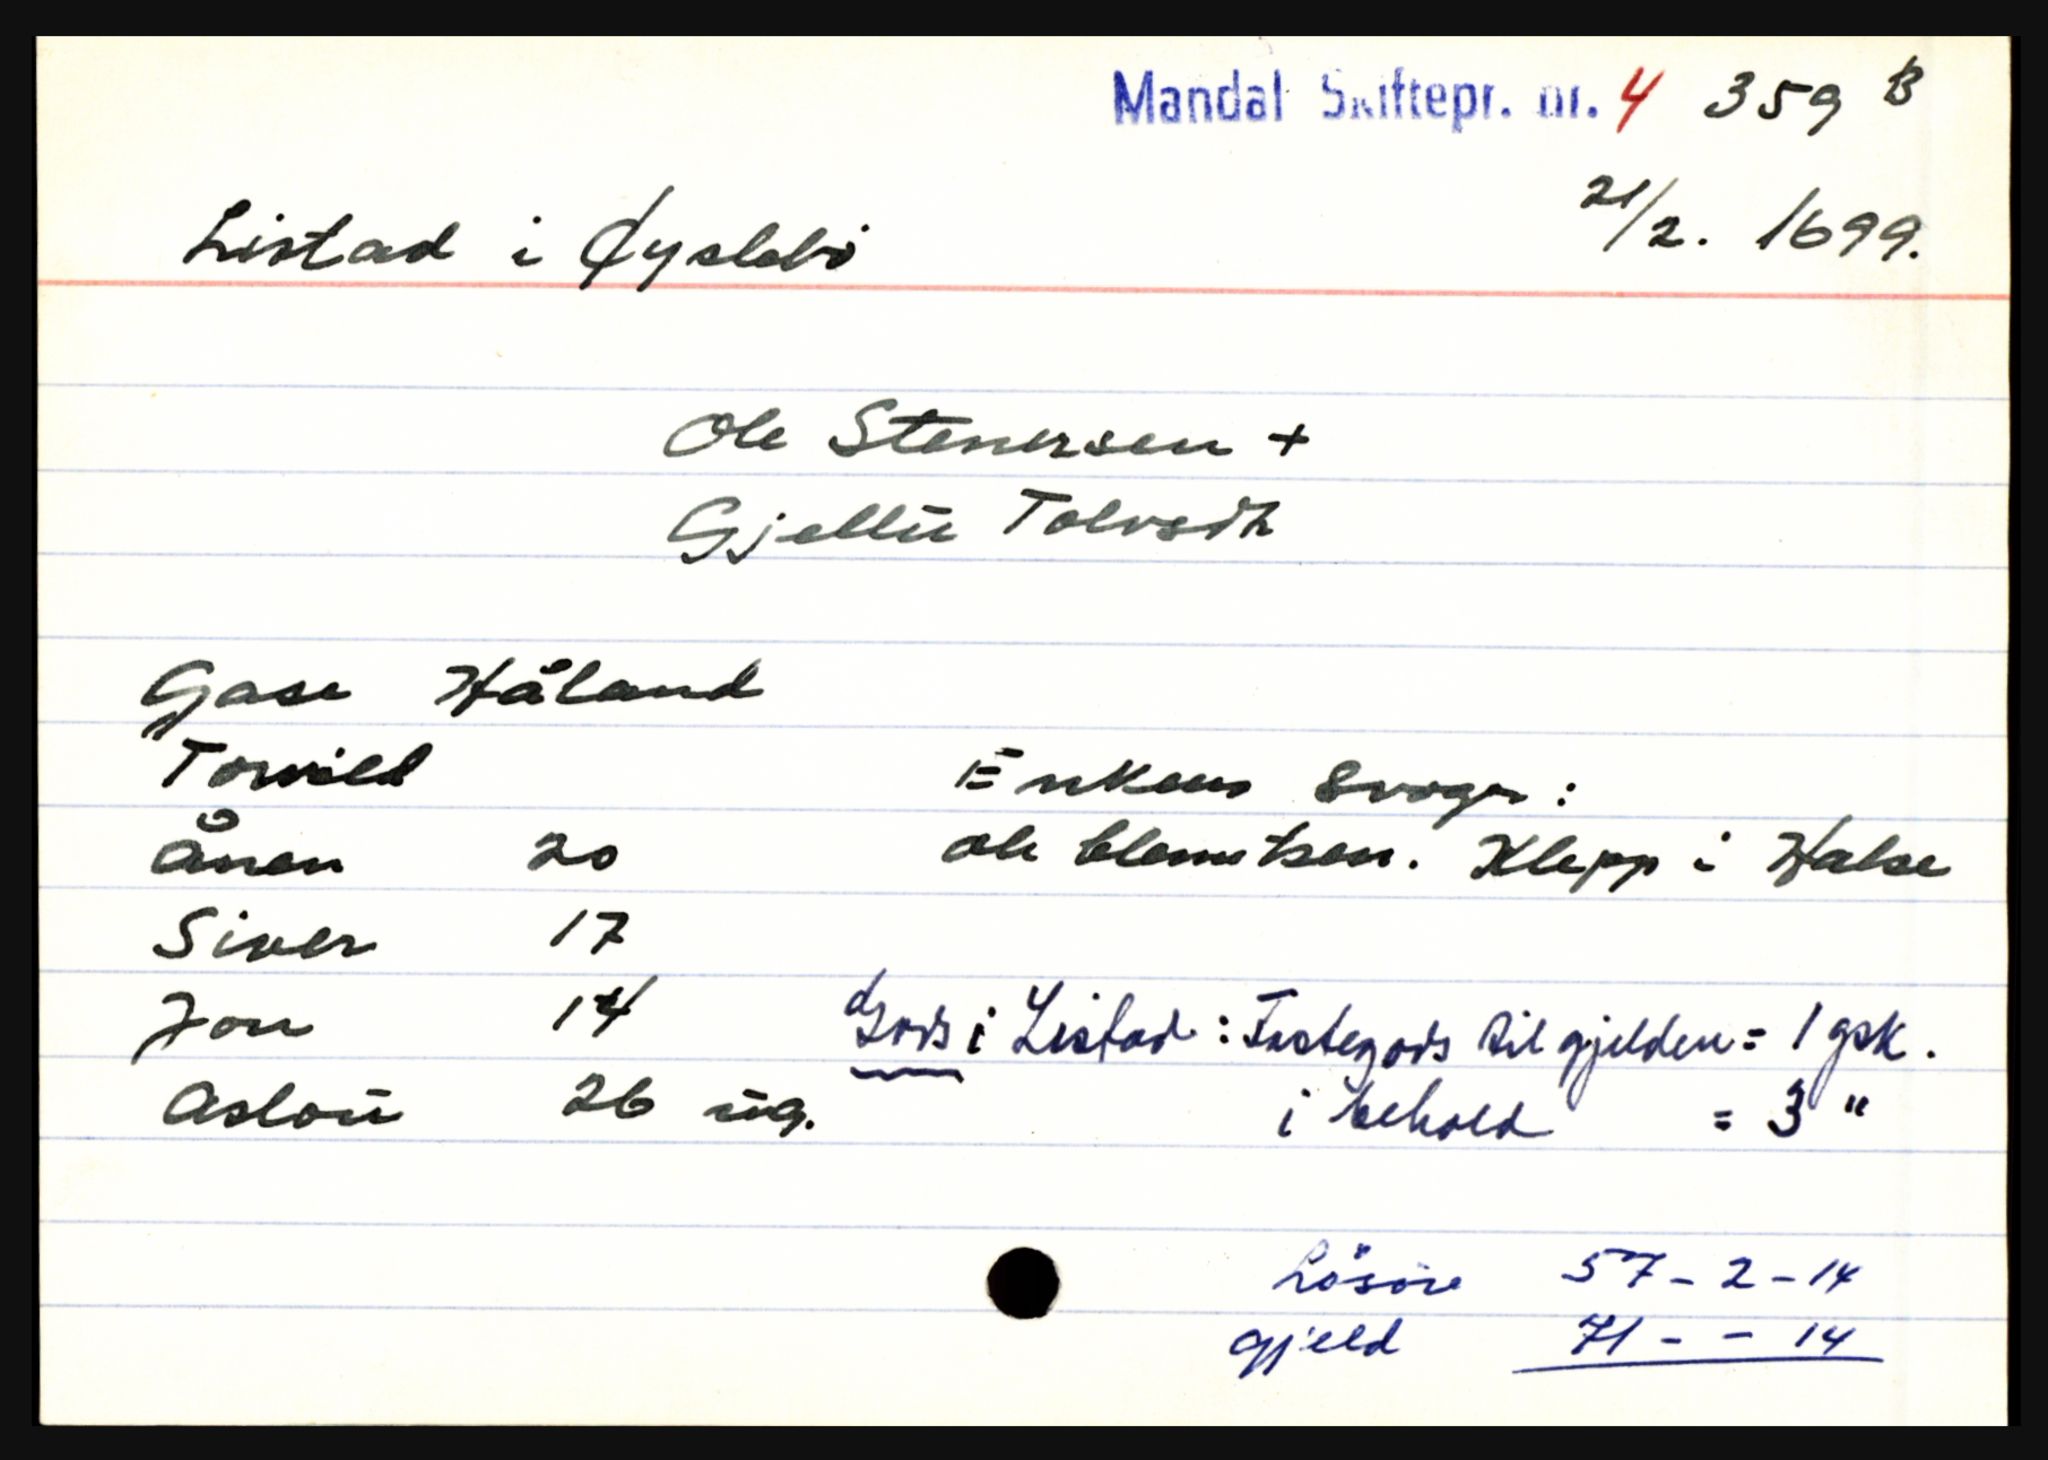 Mandal Skiftepr. nr. 4 359 B
21/2. 1699.
Listad i Øyslebö
Ole Stenersen +
Gjellü Tolvsdh
Gase Håland
Torvild
Ånen 20
Enkens Svoger:
Siver 17
ole Clemetsen. Klepp i Halse
Jon 14
Gods i Listad: Festegods til gjelden = 1 gsk.
Aslou 26 ug.
i behold = 3 "
Lösöre 57 - 2 - 14
gjeld 71 - - 14